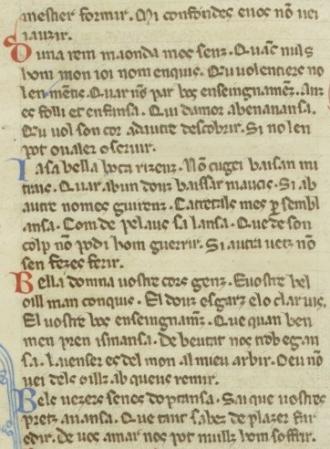 mestier formir. Mi confondez e uos nō uei
iauzir.
Duna rem maonda moç senz. Quāc nuls
hom mon ioi nom enquis. Qeu uolentiers no
len mētis. Quar nōs par boç enseingnamēz. Anz
es folli et enfansa. Qui damor abenanansa.
Qeu uol son cor adautre descobrir. Si no len
pot oualer o seruir.
Ia sa bella boca rizenz. Nō cugei baisan mi
trais. Quar ab un douz baissar maucis. Si ab
autre nomes guirenz. Catretals mes p sembl
ansa. Com de pelaus sa lansa. Que de son
colp nō podi hom guerrir. Si autra uetz nō
sen fezes ferir.
Bella domna uostre cors genz. E uostre bel
oill man conquis. El douz esgarz e lo clar uis.
El uostre boç enseingnamz. Que quan ben
men pren esmansa. De beutat nos trob egan
sa. La uenser es del mon al mieu arbir. O eu nō
uei dels oillz ab queus remir.
Bels uezers senes doptansa. Sai que uostre
pretz auansa. Que tant sabez de plazer far
e dir. de uos amar nos pot nuillz hom soffrir.